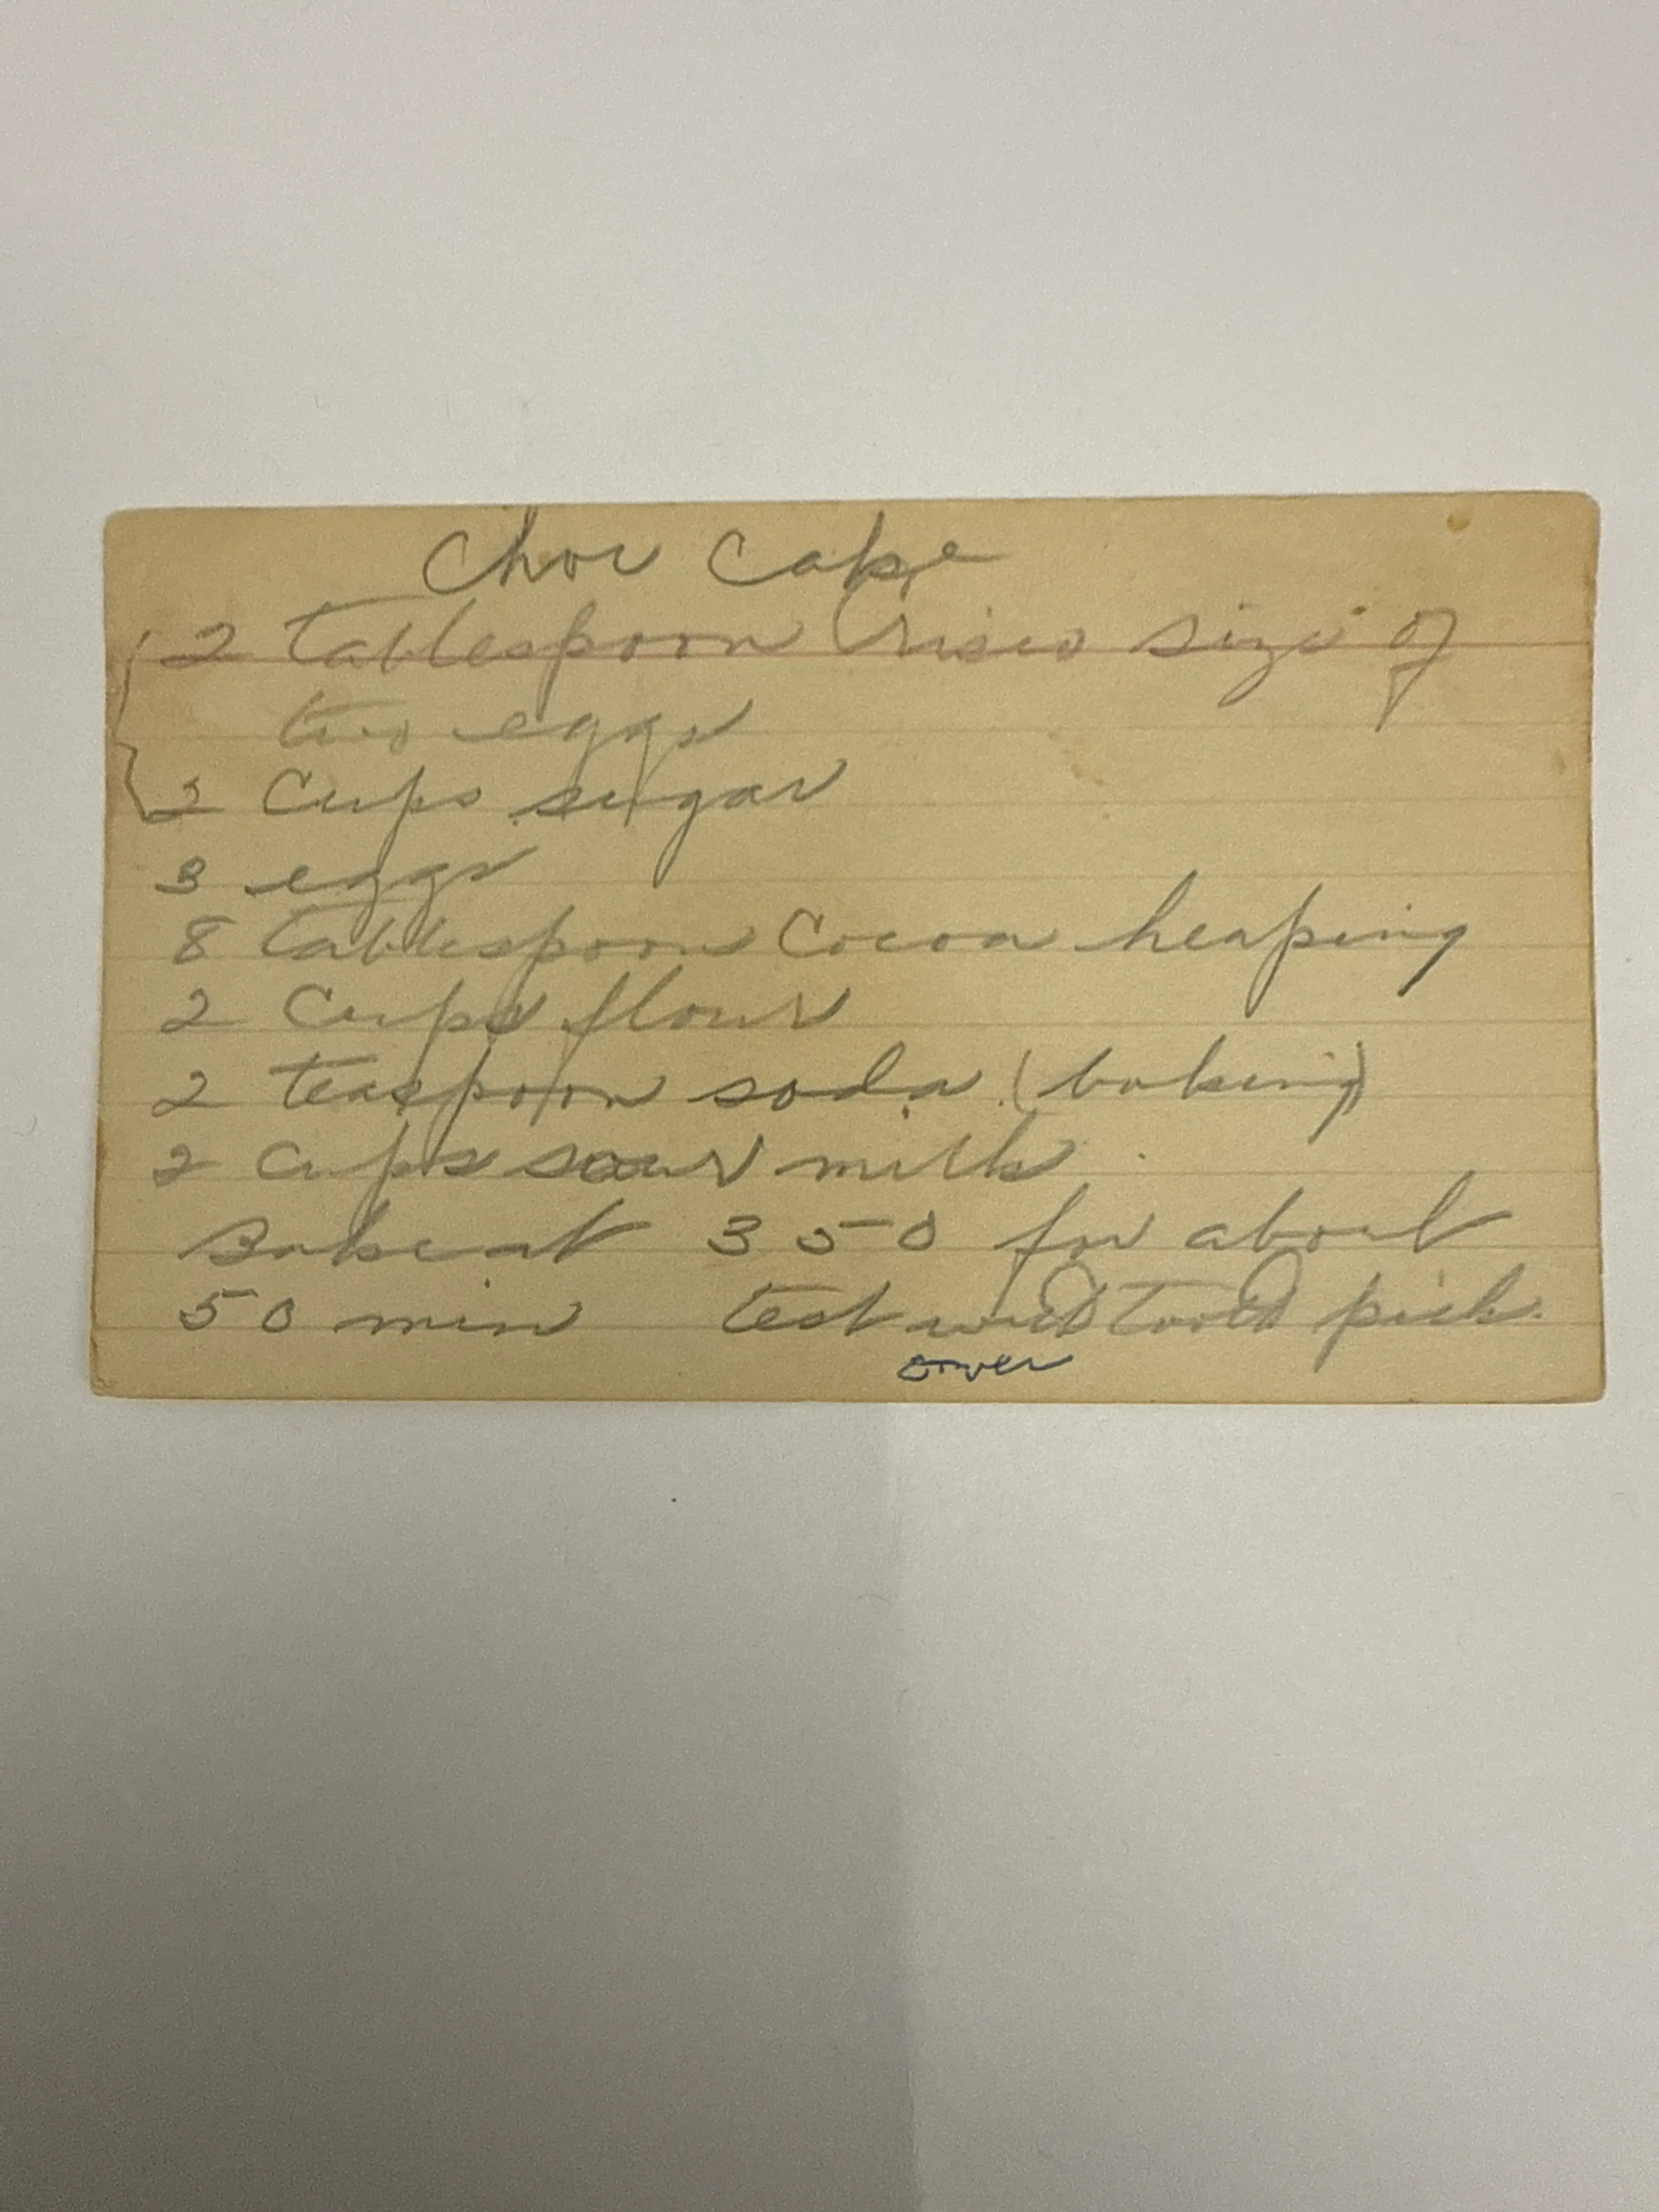 Choc Cake
2 tablespoon Crisco size of
two eggs
2 Cups sugar
3 eggs
8 tablespoon Cocoa heaping
2 Cups flour
2 teaspoon soda (baking)
2 cups sour milk
Bake at 350 for about
50 min test with tooth pick.
over